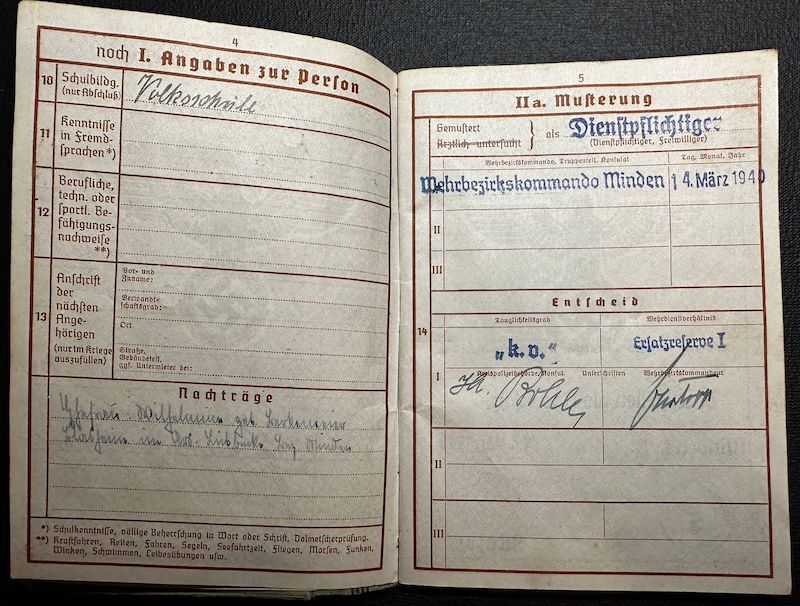 4
noch I. Angaben zur Person
10 Schulbildg. (nur Abschluß) Volksschule
11 Kenntnisse in Fremdsprachen*)
12 Berufliche, techn. oder sportl. Befähigungsnachweise **)
13 Anschrift der nächsten Angehörigen (nur im Kriege auszufüllen)
Vor- und Zuname:
Verwandtschaftsgrad:
Ort
Straße, Gebäudeteil, ggf. Untermieter bei:
Nachträge
Ehefrau Wilhelmine geb.
im Krs. Lübbecke Bez. Minden
*) Schulkenntnisse, völlige Beherrschung in Wort oder Schrift, Dolmetscherprüfung.
**) Kraftfahren, Reiten, Fahren, Segeln, Seefahrtzeit, Fliegen, Morsen, Funken,
Winken, Schwimmen, Leibesübungen usw.
5
IIa. Musterung
Gemustert
Ärztlich untersucht } als Dienstpflichtiger
(Dienstpflichtiger, Freiwilliger)
Wehrbezirkskommando, Truppenteil, Konsulat Tag, Monat, Jahr
Wehrbezirkskommando Minden 14. März 1940
II
III
Entscheid
14
Tauglichkeitsgrad Wehrdienstverhältnis
I „k.v.“ Ersatzreserve I
Kreispolizeibehörde, Konsul. Unterschriften Wehrbezirkskommandeur
II
III